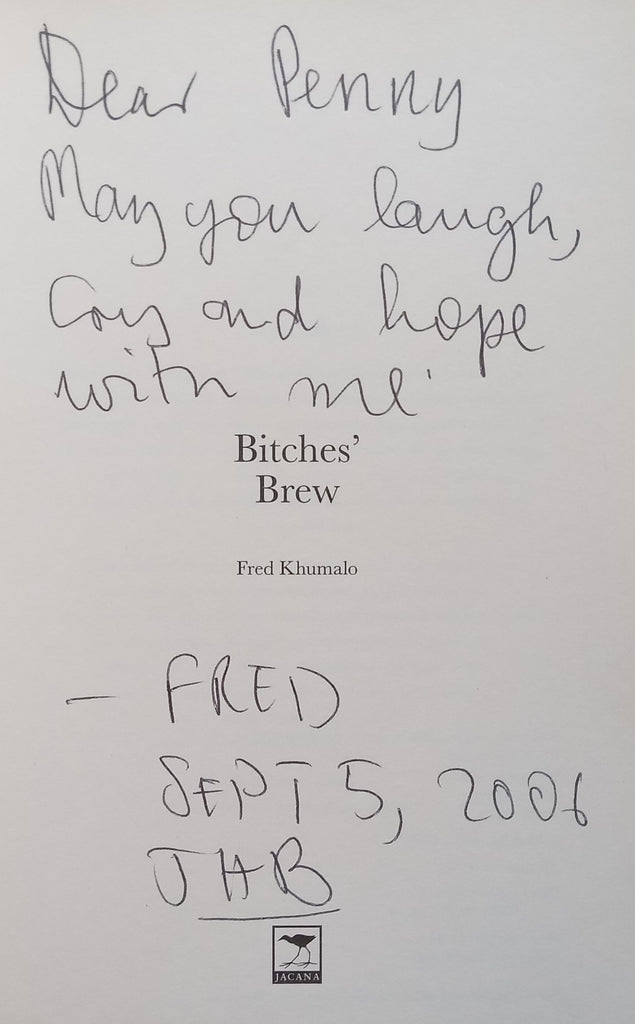 Dear Penny
May you laugh,
Cry and hope
with me.
Bitches’
Brew
Fred Khumalo
— FRED
SEPT 5, 2006
JHB
JACANA